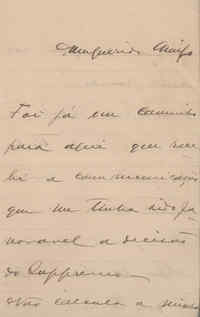 Meu querido Amigo
Foi já em caminho
para aqui que rece
bi a communicação
que me tinha sido fa
voravel a decisão
do Supremo.
Não calcula a minha